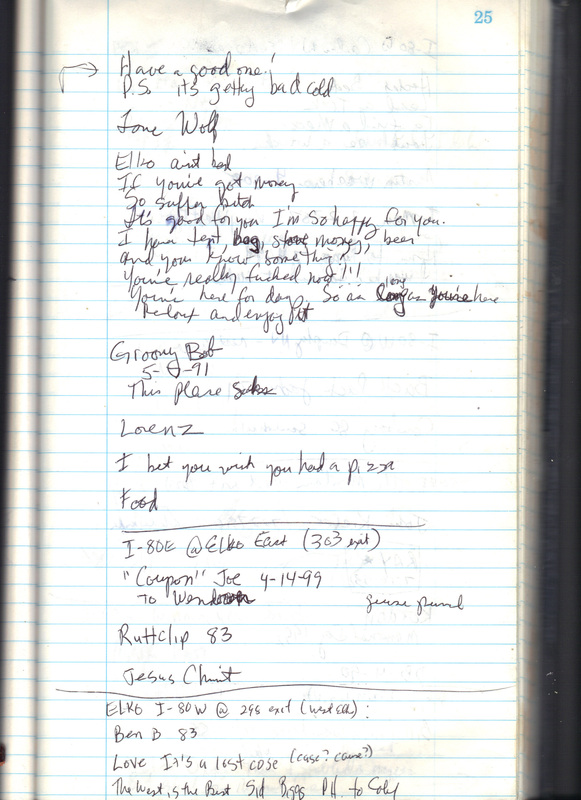 25
Have a good one!
P.S. it's getting bad cold
Lone Wolf
Elko aint bad
If you've got money
So suffer bitch
It's good for you I'm so happy for you.
I have tent, bag, stove, money, beer
and you know something?
You're really fucked now!!!
You're here for days, So as long as you're here
Relax and enjoy it
Groovy Bob
5- -91
This place sucks
Lorenz
I bet you wish you had a pizza
Food
I-80E @ Elko East (303 exit)
"Coupon" Joe 4-14-99
To Wendover
Ruttclip 83
Jesus Christ
ELKO I-80W @ 298 exit (west Elko):
Ben B 83
Love It's a lost cose (case? cause?)
The West is the Best Sid Biggs PA. to Calif